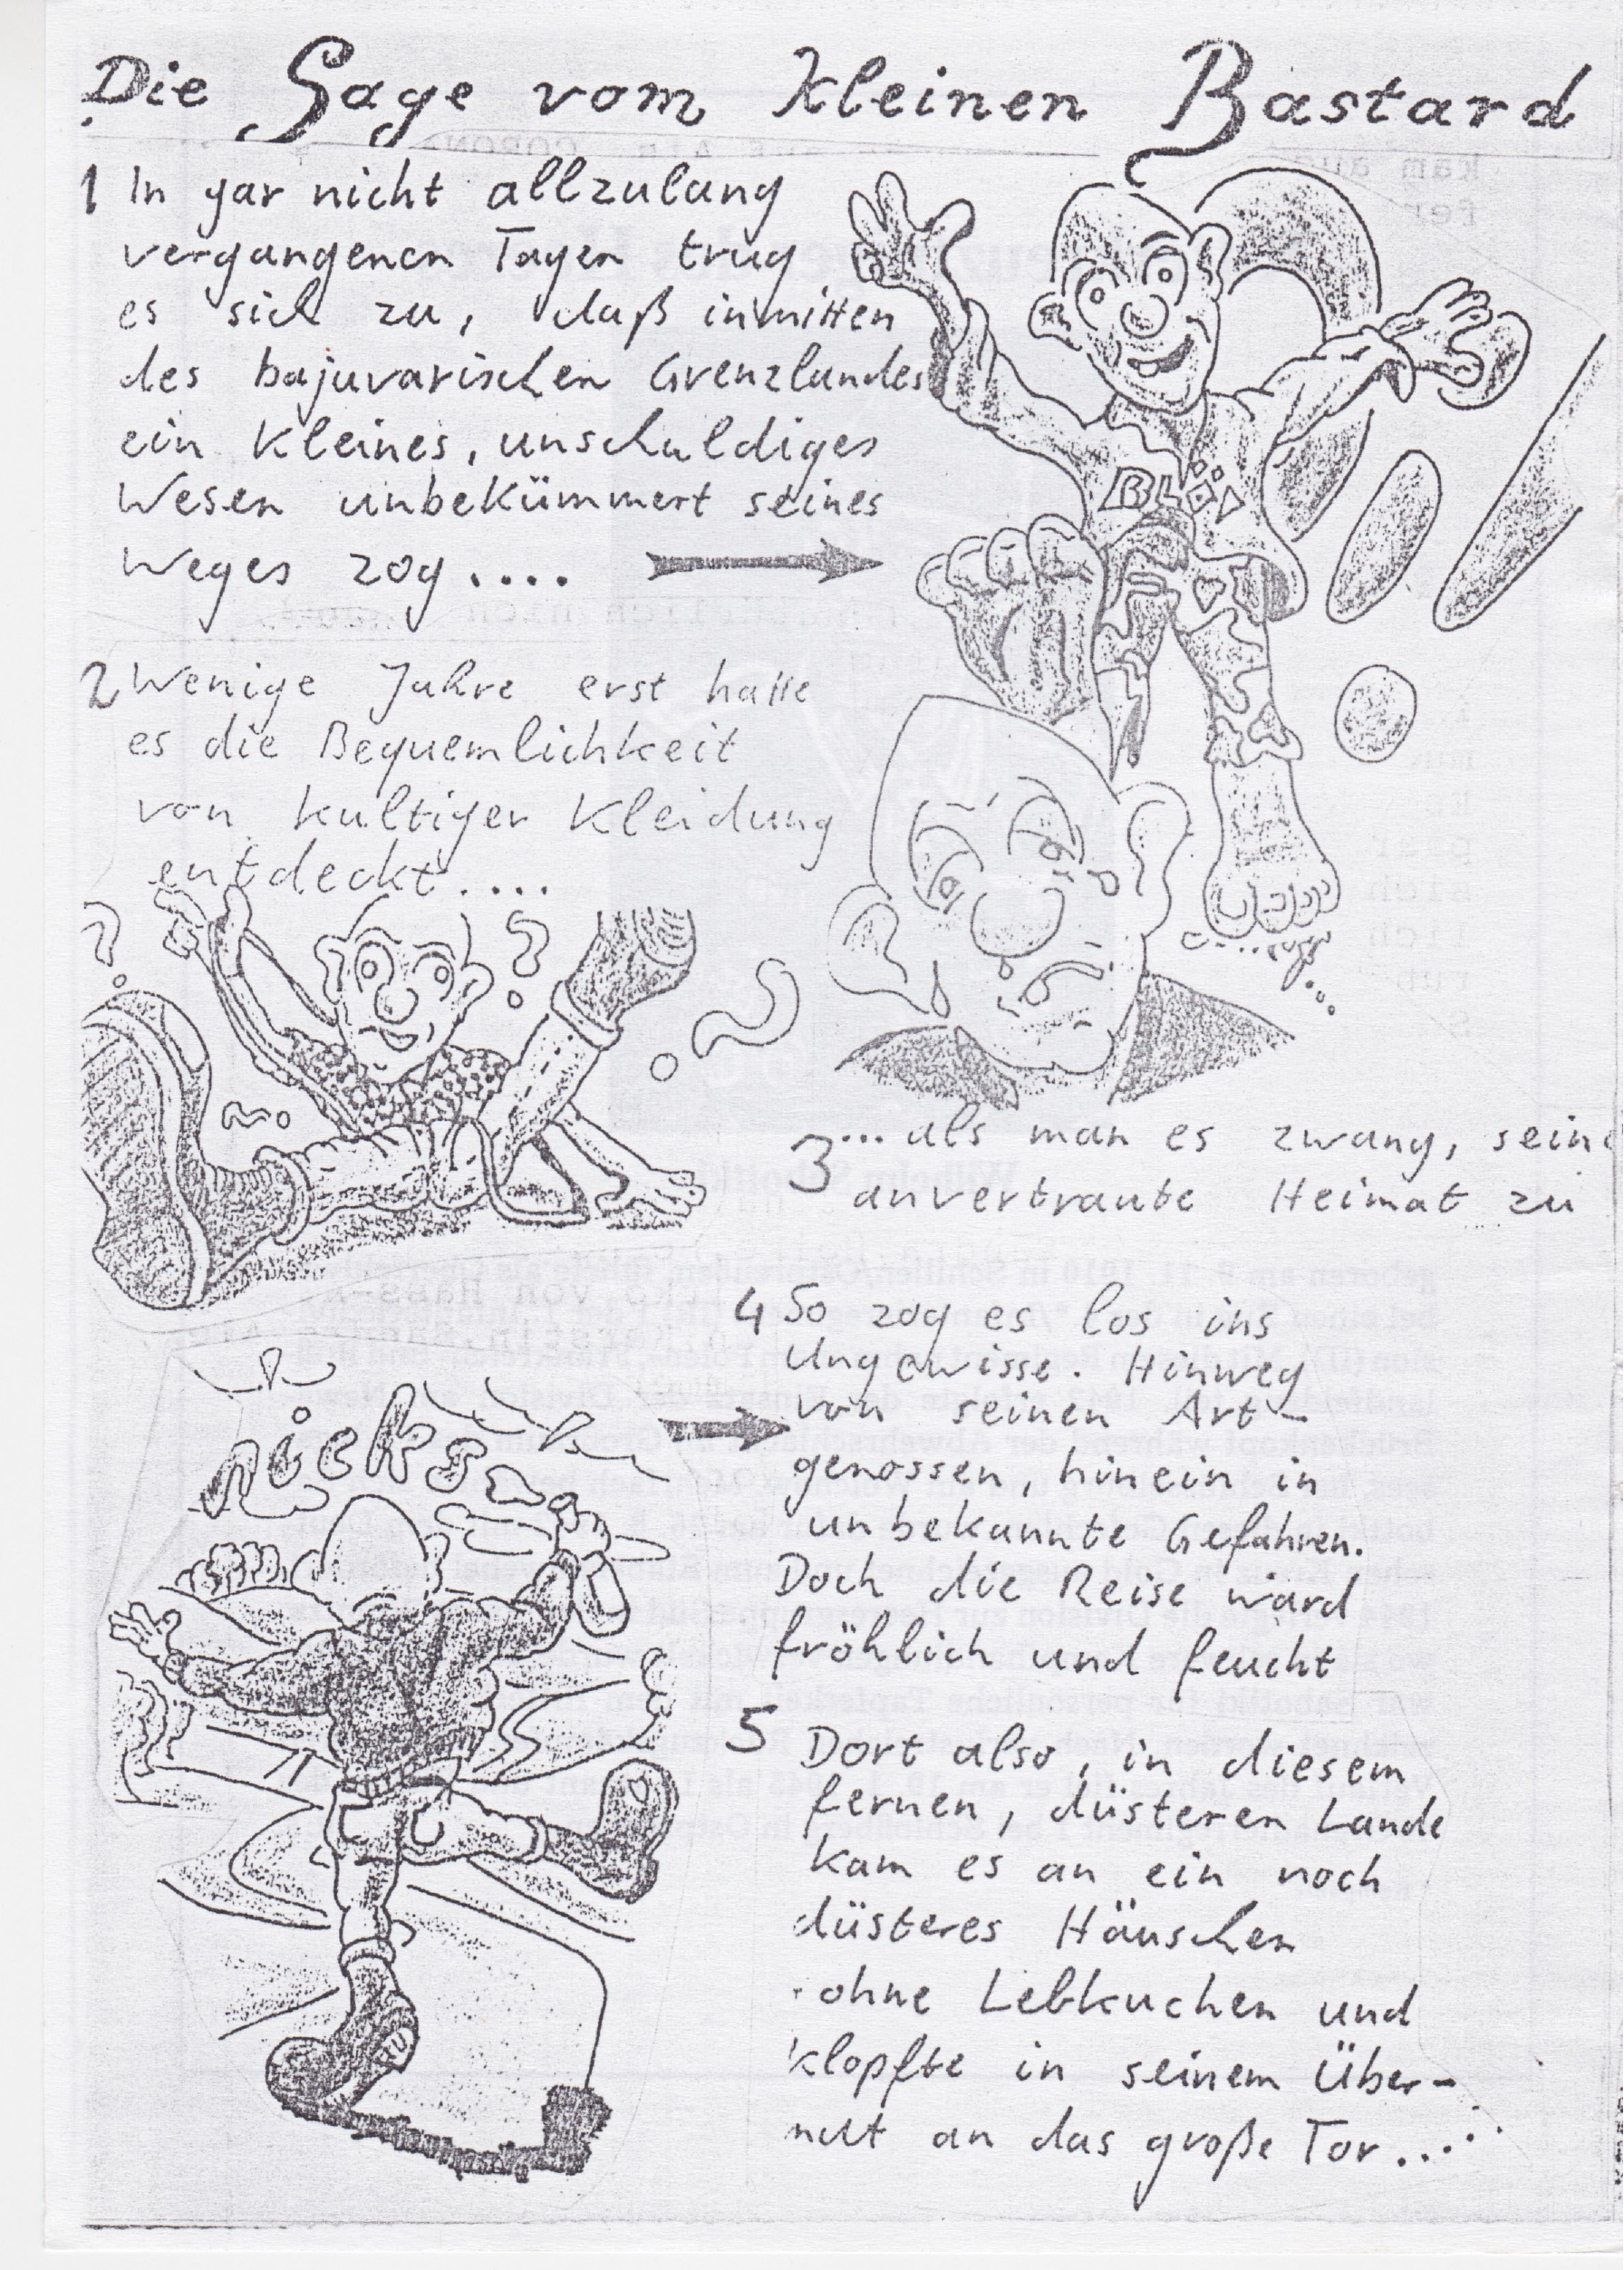 Die Sage vom kleinen Bastard
1 In gar nicht allzulang
vergangenen Tagen trug
es sich zu, daß inmitten
des bajuvarischen Grenzlandes
ein kleines, unschuldiges
Wesen unbekümmert seines
Weges zog....
2 Wenige Jahre erst hatte
es die Bequemlichkeit
von kultiger Kleidung
entdeckt....
? ?
3 ... als man es zwang, seine
anvertraute Heimat zu
4 So zog es los ins
Ungewisse. Hinweg
von seinen Art-
genossen, hinein in
unbekannte Gefahren.
Doch die Reise ward
fröhlich und feucht
nicks
5 Dort also, in diesem
fernen, düsteren Lande
kam es an ein noch
düsteres Häuschen
ohne Lebkuchen und
klopfte in seinem Über-
mut an das große Tor.....